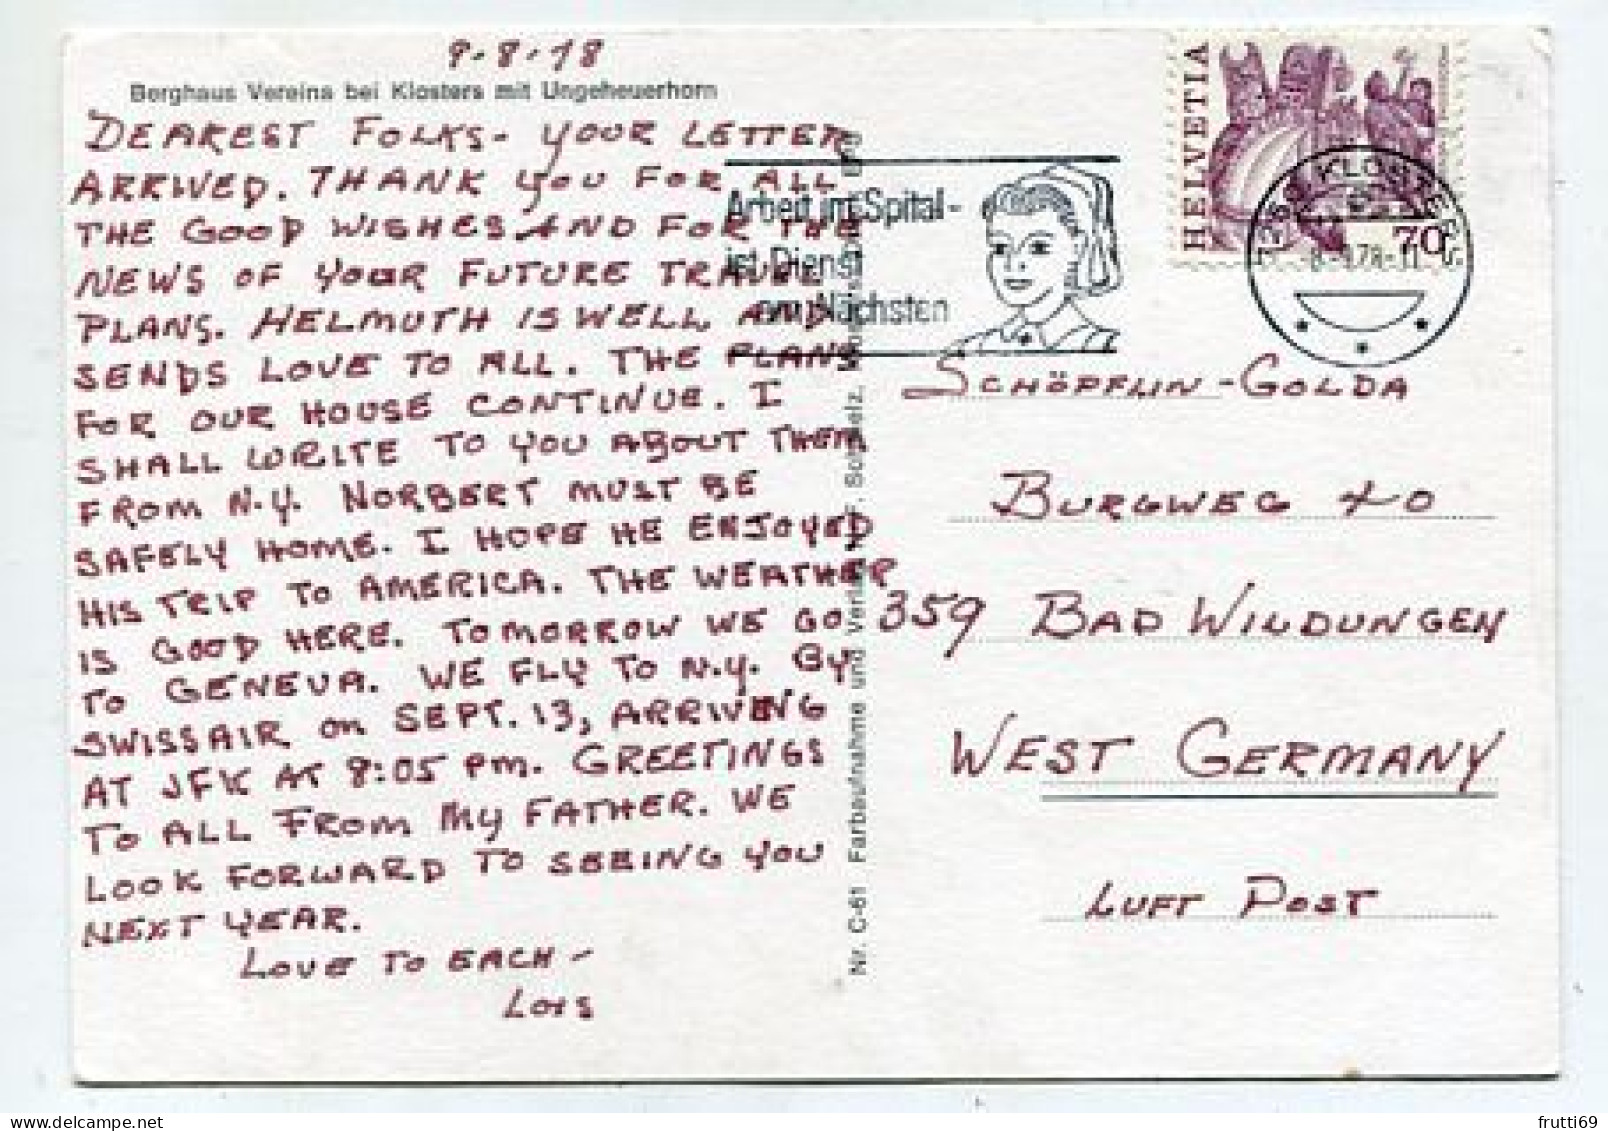 9-8-78
Berghaus Vereina bei Klosters mit Ungeheuerhorn
DEAREST FOLKS- YOUR LETTER
ARRIVED. THANK YOU FOR ALL
THE GOOD WISHES AND FOR THE
NEWS OF YOUR FUTURE TRAVEL
PLANS. HELMUTH IS WELL AND
SENDS LOVE TO ALL. THE PLANS
FOR OUR HOUSE CONTINUE. I
SHALL WRITE TO YOU ABOUT THEM
FROM N.Y. NORBERT MUST BE
SAFELY HOME. I HOPE HE ENJOYED
HIS TRIP TO AMERICA. THE WEATHER
IS GOOD HERE. TOMORROW WE GO
TO GENEVA. WE FLY TO N.Y. BY
SWISSAIR ON SEPT. 13, ARRIVING
AT JFK AT 8:05 PM. GREETINGS
TO ALL FROM MY FATHER. WE
LOOK FORWARD TO SEEING YOU
NEXT YEAR.
LOVE TO EACH -
LOIS
Nr. C-61 Farbaufnahme und Verlag
Arbeit im Spital-
ist Dienst
am Nächsten
HELVETIA
70
KLOSTERS
SCHÖPFLIN-GOLDA
BURGWEG 40
359 BAD WILDUNGEN
WEST GERMANY
LUFT POST
frutti69